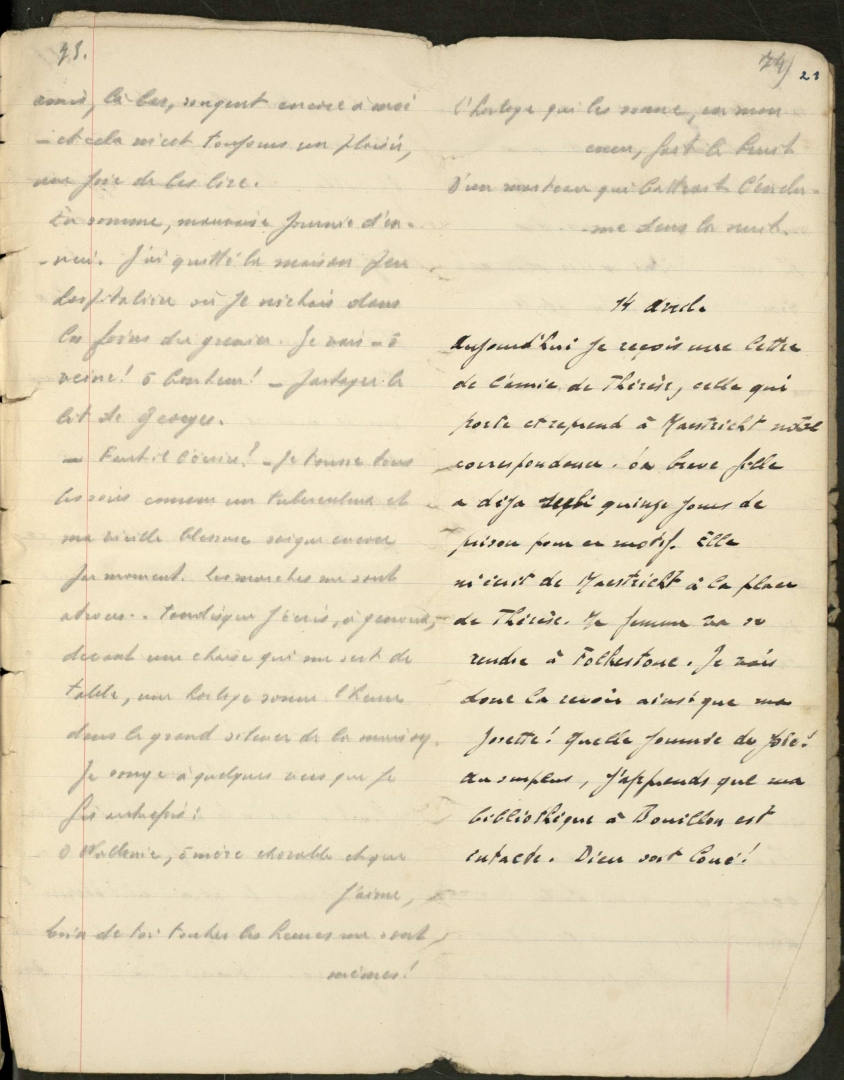 73.
amis, là-bas, songent encore à moi
– et cela m'est toujours un plaisir,
une joie de les lire.
En somme, mauvaise journée d'en-
-nui. J'ai quitté la maison peu
hospitalière où je nichais dans
les foins du grenier. Je vais – ô
veine! ô bonheur! – partager le
lit de Georges.
– Faut-il l'écrire? – Je tousse tous
les soirs comme un tuberculeux et
ma vieille blessure saigne encore
par moment. Les marches me sont
atroces.. Tandis que j'écris, à genoux,
devant une chaise qui me sert de
table, une horloge sonne l'heure
dans le grand silence de la maison.
Je songe à quelques vers que je
fis autrefois:
O Wallonie, ô mère adorable et que
j'aime,
Loin de toi toutes les heures me sont
mêmes!
74) 21
l'horloge qui les sonne, en mon
cœur, fait le bruit
D'un marteau qui battrait l'enclu-
-me dans la nuit.
14 avril.
Aujourd'hui je reçois une lettre
de l'amie de Thérèse, celle qui
porte et reprend à Maestricht notre
correspondance. La brave fille
a déjà subi quinze jours de
prison pour ce motif. Elle
m'écrit de Maestricht à la place
de Thérèse. Ma femme va se
rendre à Folkestone. Je vais
donc la revoir ainsi que ma
Josette! Quelle journée de joie!
Au surplus, j'apprends que ma
bibliothèque à Bouillon est
intacte. Dieu soit loué!